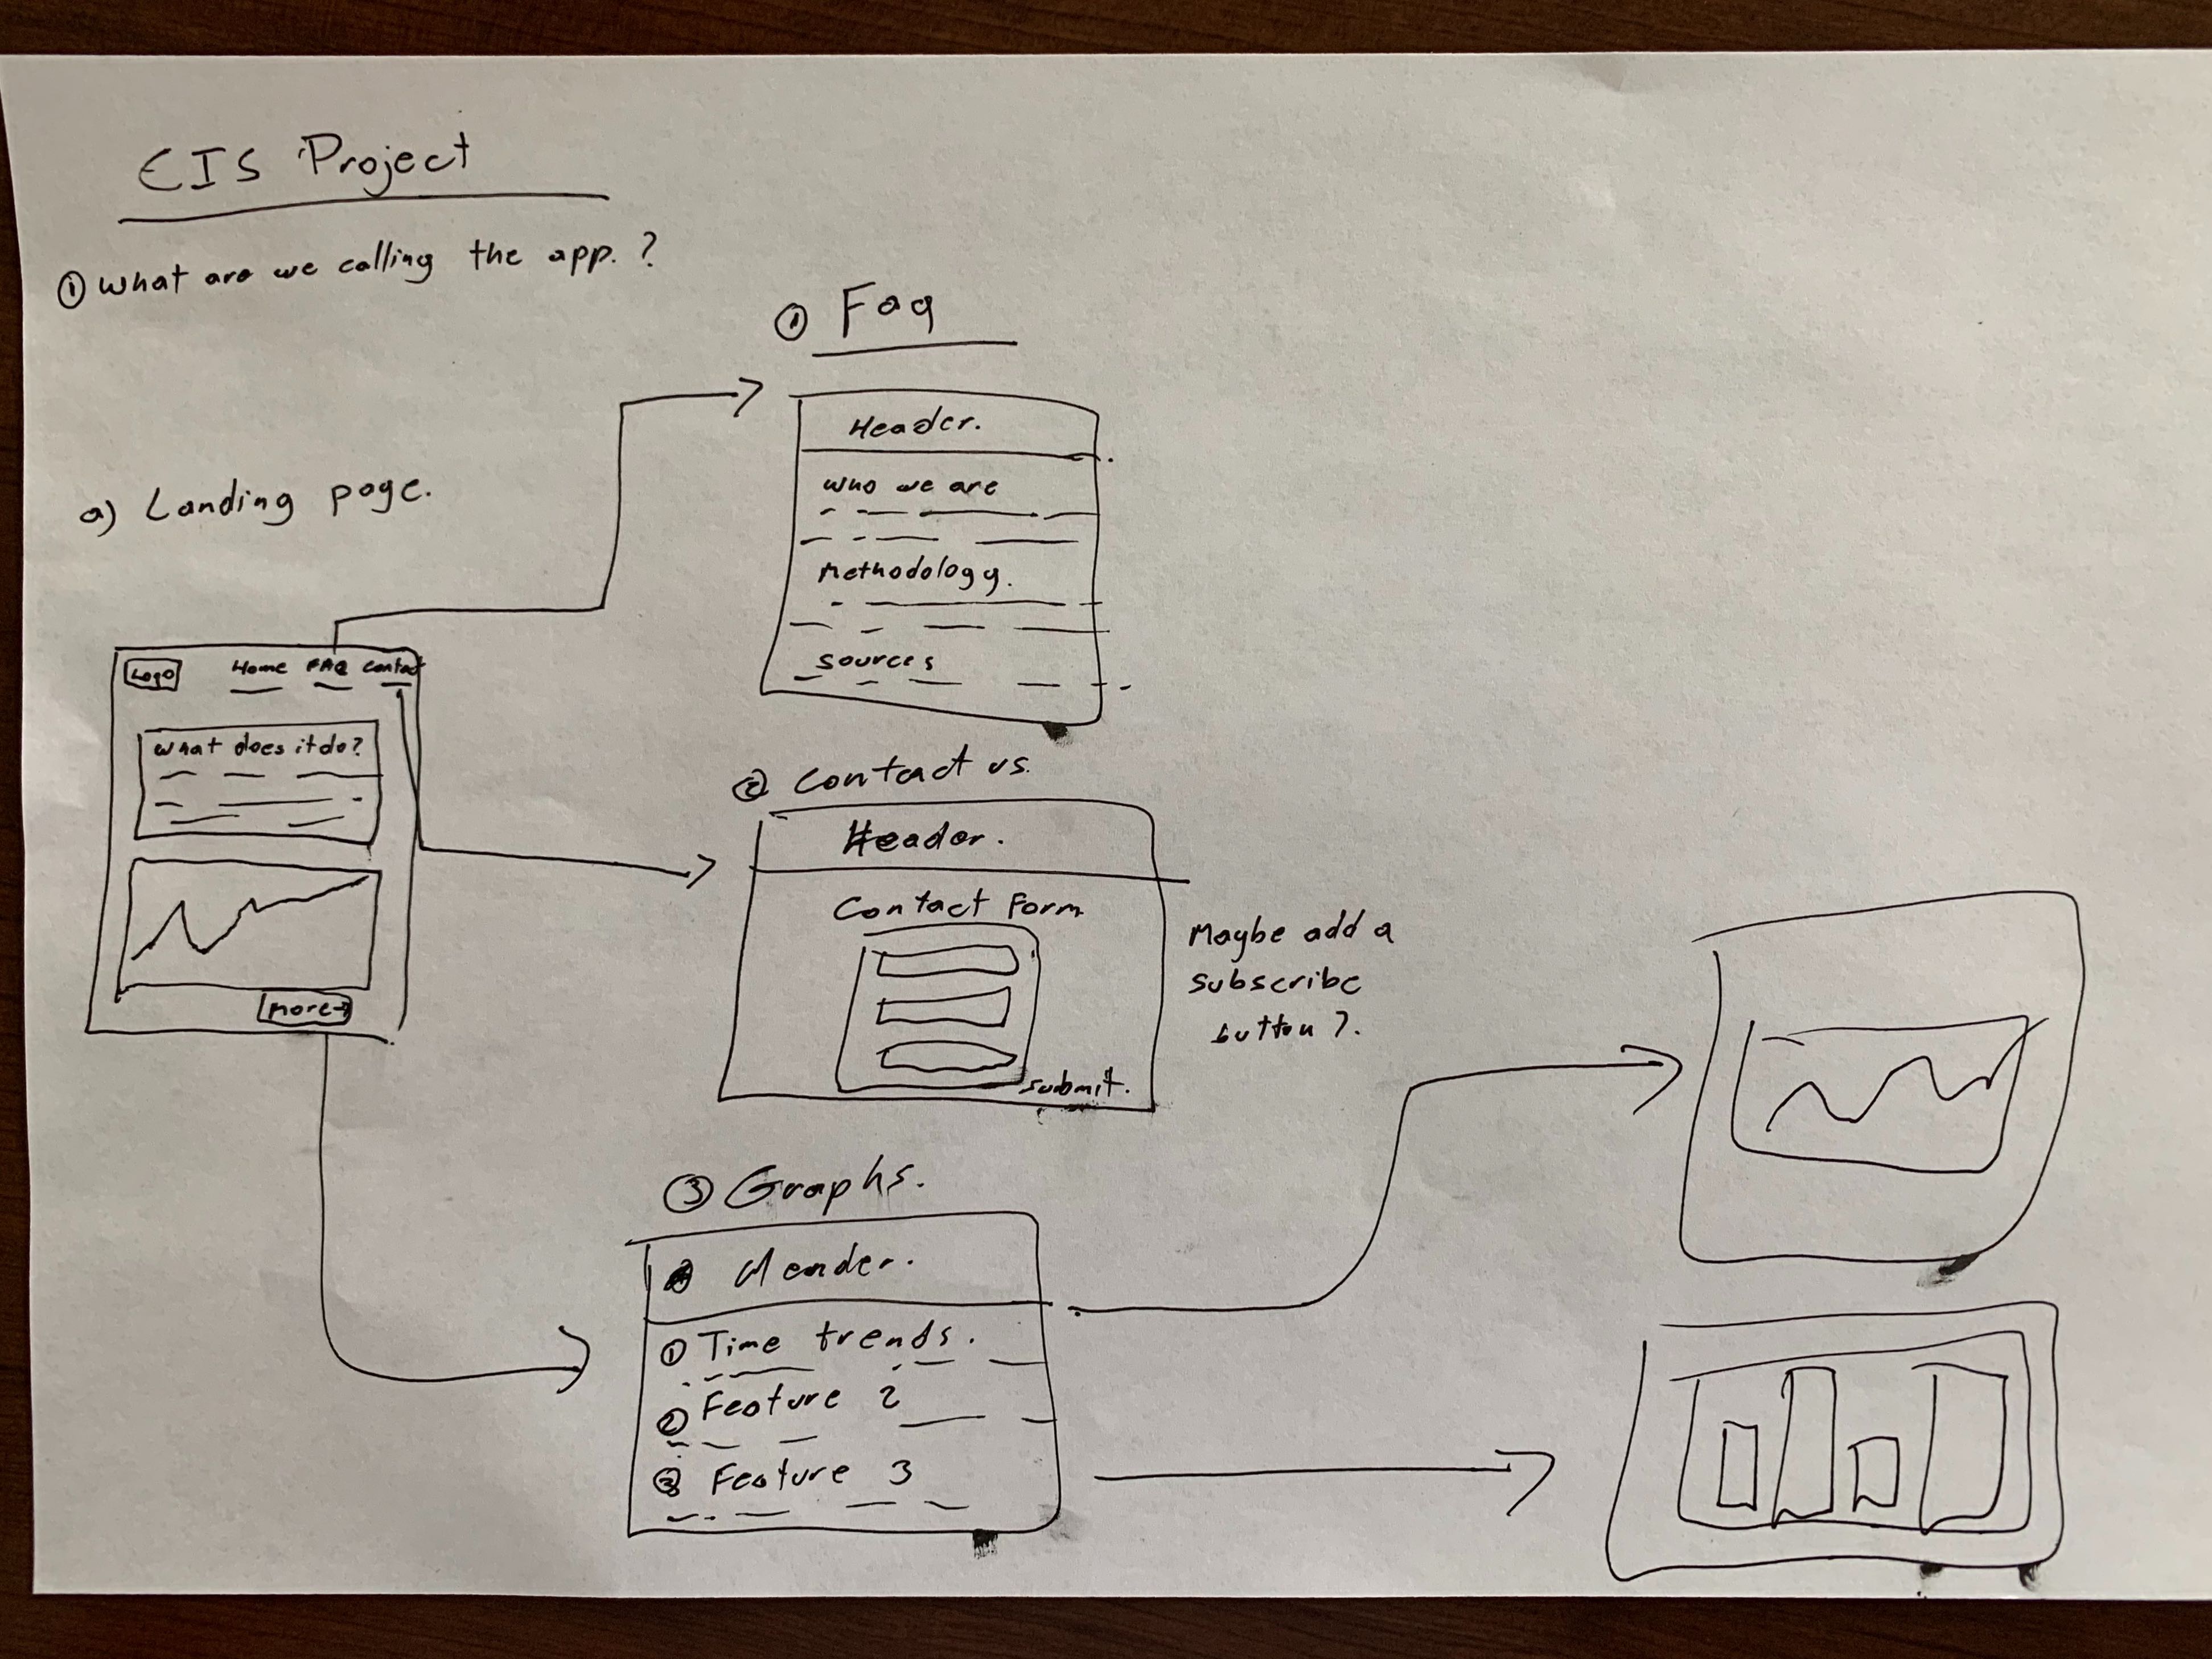 CIS Project
① What are we calling the app.?
a) Landing page.
Logo Home FAQ Contact
What does it do?
More→
① Faq
Header.
who we are
Methodology.
sources
② Contact us.
Header.
Contact Form
submit.
Maybe add a
subscribe
button?.
③ Graphs.
Header.
① Time trends.
② Feature 2
③ Feature 3